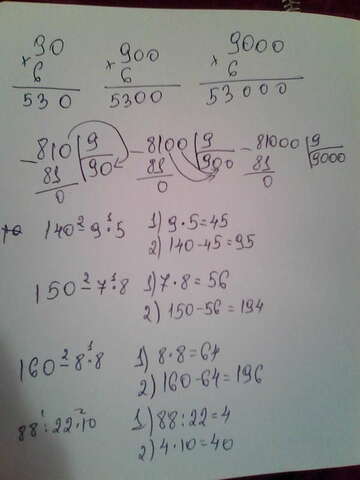 90 900 9000
× 6 × 6 × 6
530 5300 53000
− 810 | 9 − 8100 | 9 − 81000 | 9
81 | 90 81 | 900 81 | 9000
0 0 0
140 − 9 · 5 1) 9 · 5 = 45
2 1
2) 140 − 45 = 95
150 − 7 · 8 1) 7 · 8 = 56
2 1
2) 150 − 56 = 194
160 − 8 · 8 1) 8 · 8 = 64
2 1
2) 160 − 64 = 196
88 : 22 · 10 1) 88 : 22 = 4
1 2
2) 4 · 10 = 40